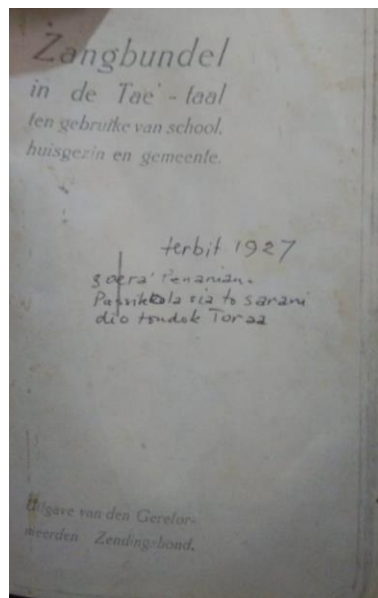 Zangbundel
in de Tae' - taal
ten gebruike van school,
huisgezin en gemeente.
terbit 1927
soera' Penanian.
Passikola sia to sarani
dio tondok Toraa
Uitgave van den Gerefor-
meerden Zendingsbond.